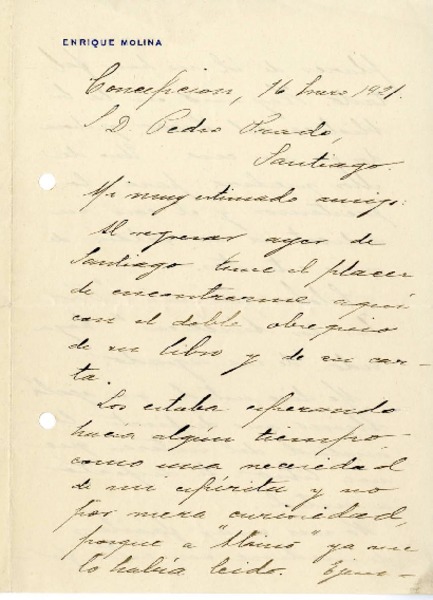 ENRIQUE MOLINA
Concepcion, 16 Enero 1921.
S. D. Pedro Prado,
Santiago.
Mi muy estimado amigo:
Al regresar ayer de
Santiago tuve el placer
de encontrarme aquí
con el doble obsequio
de su libro y de su car-
ta.
Los estaba esperando
hacía algún tiempo
como una necesidad
de mi espíritu y no
por mera curiosidad,
porque a "Alsino" ya me
lo había leido.